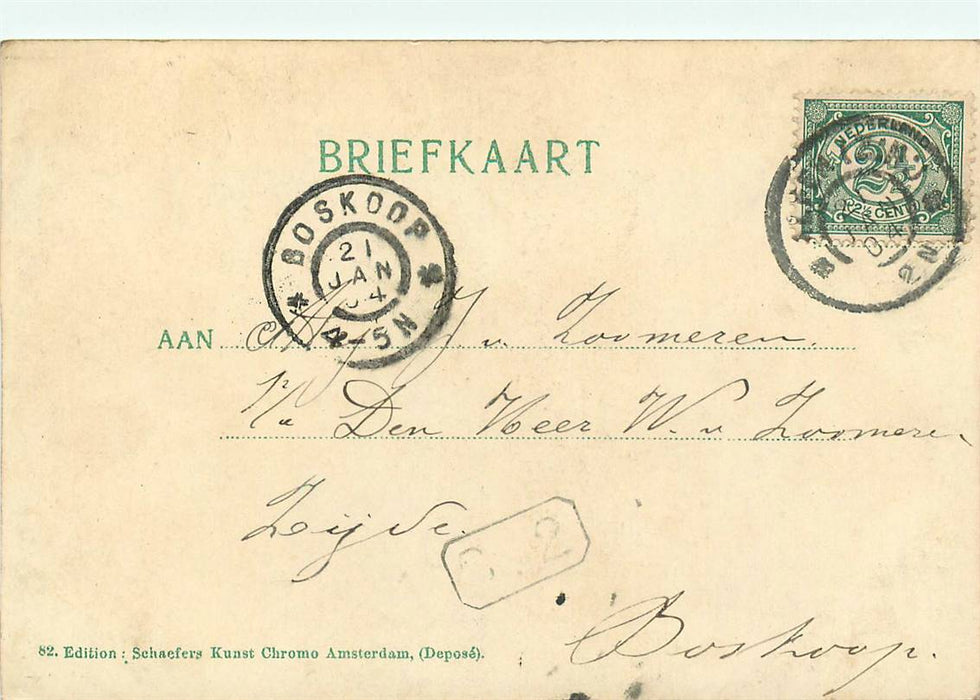 BRIEFKAART
NEDERLAND
2½
2½ CENT
2 N
BOSKOOP
21
JAN
04
4-5N
AAN J. v. Zoomeren.
p/a Den Heer W. v Zoomeren
Zijde.
2
Boskoop.
82. Edition: Schaefers Kunst Chromo Amsterdam, (Deposé).